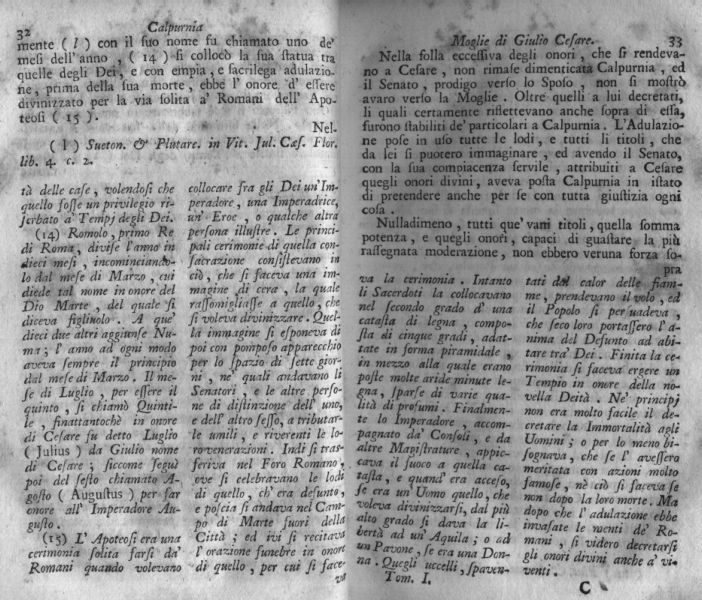 32
Calpurnia
mente ( l ) con il ſuo nome fu chiamato uno de'
meſi dell'anno , ( 14 ) ſi collocò la ſua ſtatua tra
quelle degli Dei, e con empia, e ſacrilega adulazio-
ne, prima della ſua morte, ebbe l'onore d'eſſere
divinizzato per la via ſolita a' Romani dell' Apo-
teoſi ( 15 ).
Nel-
( l ) Sueton. & Plutarc. in Vit. Jul. Cæſ. Flor.
lib. 4. c. 2.
tù delle caſe , volendoſi che
quello foſſe un privilegio ri-
ſerbato a' Tempj degli Dei.
(14) Romolo , primo Re
di Roma , diviſe l'anno in
dieci meſi , incominciando-
lo dal meſe di Marzo , cui
diede tal nome in onore del
Dio Marte , del quale ſi
diceva figliuolo . A que'
dieci due altri aggiunſe Nu-
ma ; l' anno ad ogni modo
aveva ſempre il principio
dal meſe di Marzo . Il me-
ſe di Luglio , per eſſere il
quinto , ſi chiamò Quinti-
le , finattantochè in onore
di Ceſare fu detto Luglio
( Julius ) da Giulio nome
di Ceſare ; ſiccome ſeguì
poi del ſeſto chiamato A-
goſto ( Auguſtus ) per far
onore all' Imperadore Au-
guſto .
(15) L' Apoteoſi era una
cerimonia ſolita farſi da'
Romani quando volevano
collocare fra gli Dei un'Im-
peradore , una Imperadrice,
un' Eroe , o qualche altra
perſona illuſtre . Le princi-
pali cerimonie di quella con-
ſacrazione conſiſtevano in
ciò , che ſi faceva una im-
magine di cera , la quale
raſſomigliaſſe a quello , che
ſi voleva divinizzare . Quel-
la immagine ſi eſponeva di
poi con pompoſo apparecchio
per lo ſpazio di ſette gior-
ni , ne' quali andavano li
Senatori , e le altre perſo-
ne di diſtinzione dell' uno,
e dell'altro ſeſſo , a tributar-
le umili , e riverenti le lo-
ro venerazioni . Indi ſi traſ-
feriva nel Foro Romano ,
ove ſi celebravano le lodi
di quello , ch' era defunto ,
e poſcia ſi andava nel Cam-
po di Marte fuori della
Città ; ed ivi ſi recitava
l'orazione funebre in onore
di quello , per cui ſi face-
va
Moglie di Giulio Ceſare.
33
Nella folla ecceſſiva degli onori , che ſi rendeva-
no a Ceſare , non rimaſe dimenticata Calpurnia , ed
il Senato , prodigo verſo lo Spoſo , non ſi moſtrò
avaro verſo la Moglie . Oltre quelli a lui decretati,
li quali certamente riflettevano anche ſopra di eſſa,
furono ſtabiliti de' particolari a Calpurnia . L'Adulazio-
ne poſe in uſo tutte le lodi , e tutti li titoli , che
da lei ſi puotero immaginare , ed avendo il Senato,
con la ſua compiacenza ſervile , attribuiti a Ceſare
quegli onori divini , aveva poſta Calpurnia in iſtato
di pretendere anche per ſe con tutta giuſtizia ogni
coſa .
Nulladimeno , tutti que' vani titoli , quella ſomma
potenza , e quegli onori , capaci di guaſtare la più
raſſegnata moderazione , non ebbero veruna forza ſo-
pra
va la cerimonia . Intanto
li Sacerdoti la collocavano
nel ſecondo grado d' una
cataſta di legna , compo-
ſta di cinque gradi , adat-
tate in forma piramidale ,
in mezzo alla quale erano
poſte molte aride minute le-
gna , ſparſe di varie qua-
lità di profumi . Finalmen-
te lo Imperadore , accom-
pagnato da' Conſoli , e da
altre Magiſtrature , appic-
cava il fuoco a quella ca-
taſta , e quand' era acceſo ,
ſe era un Uomo quello, che
voleva divinizzarſi, dal più
alto grado ſi dava la li-
bertà ad un' Aquila ; o ad
un Pavone , ſe era una Don-
na . Quegli uccelli , ſpaven-
Tom. I.
tati dal calor delle fiam-
me , prendevano il volo , ed
il Popolo ſi perſuadeva ,
che ſeco loro portaſſero l'a-
nima del Defunto ad abi-
tare tra' Dei . Finita la ce-
rimonia ſi faceva ergere un
Tempio in onore della no-
vella Deità . Ne' principj
non era molto facile il de-
cretare la Immortalità agli
Uomini ; o per lo meno bi-
ſognava, che ſe l' aveſſero
meritata con azioni molto
famoſe , nè ciò ſi faceva ſe
non dopo la loro morte . Ma
dopo che l' adulazione ebbe
invaſate le menti de' Ro-
mani , ſi videro decretarſi
gli onori divini anche a' vi-
venti .
C